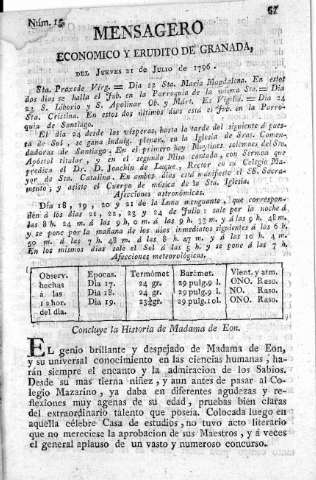 Núm. 15.
67
MENSAGERO
ECONOMICO Y ERUDITO DE GRANADA,
DEL JUEVES 21 DE JULIO DE 1796.
Sta. Praxede Virg. = Dia 22 Sta. María Magdalena. En estos
dos dias se halla el Jub. en la Parroquia de la misma Sta. = Dia
23 S. Liborio y S. Apolinar Ob. y Márt. Es Vigilia. = Dia 24
Sta. Cristina. En estos dos últimos dias está el Jub. en la Parro-
quia de Santiago.
El dia 24 desde los vísperas, hasta la tarde del siguiente á pues-
ta de Sol, se gana Indulg. plenar. en la Iglesia de Sras. Comen-
dadoras de Santiago: En el primero hay Maytines solemnes del Sto.
Apóstol titular, y en el segundo Misa cantada, con Sermon que
predica el Dr. D. Joachin de Luque, Rector en su Colegio Ma-
yor de Sta. Catalina. En ambos dias está manifiesto el SS. Sacra-
mento, y asiste el Cuerpo de música de la Sta. Iglesia.
Afecciones astronómicas.
Dia 18, 19, 20 y 21 de la Luna menguante, que correspon-
den á los dias 21, 22, 23 y 24 de Julio: sale por la noche á
las 8 h. 24 m. á las 9 h. 0 m. á las 9 h. 33 m. y á las 9 h. 48 m.
y se pone por la mañana de los dias inmediatos siguientes á las 6 h.
50 m. á las 7 h. 48 m. á las 8 h. 47 m. y á las 10 h. 4 m.
En los mismos dias sale el Sol á las 5 h. y se pone á las 7 h.
Afecciones meteorológicas.
Observ. Epocas. Termómet Barómet. Vient. y atm.
hechas Dia 17. 24 gr. 29 pulg. 9 l. ONO. Raso.
á las Dia 18. 24 gr. 29 pulg. 9 l. NO. Raso.
12 hor. Dia 19. 23½ gr. 29 pulg. 10 l. ONO. Raso.
del dia.
Concluye la Historia de Madama de Eon.
EL genio brillante y despejado de Madama de Eon,
y su universal conocimiento en las ciencias humanas, ha-
rán siempre el encanto y la admiracion de los Sabios.
Desde su mas tierna niñez, y aun antes de pasar al Co-
legio Mazarino, ya daba en diferentes agudezas y re-
flexiones muy agenas de su edad, pruebas bien claras
del extraordinario talento que poseía. Colocada luego en
aquella célebre Casa de estudios, no tuvo acto literario
que no mereciese la aprobacion de sus Maestros, y á veces
el general aplauso de un vasto y numeroso concurso.